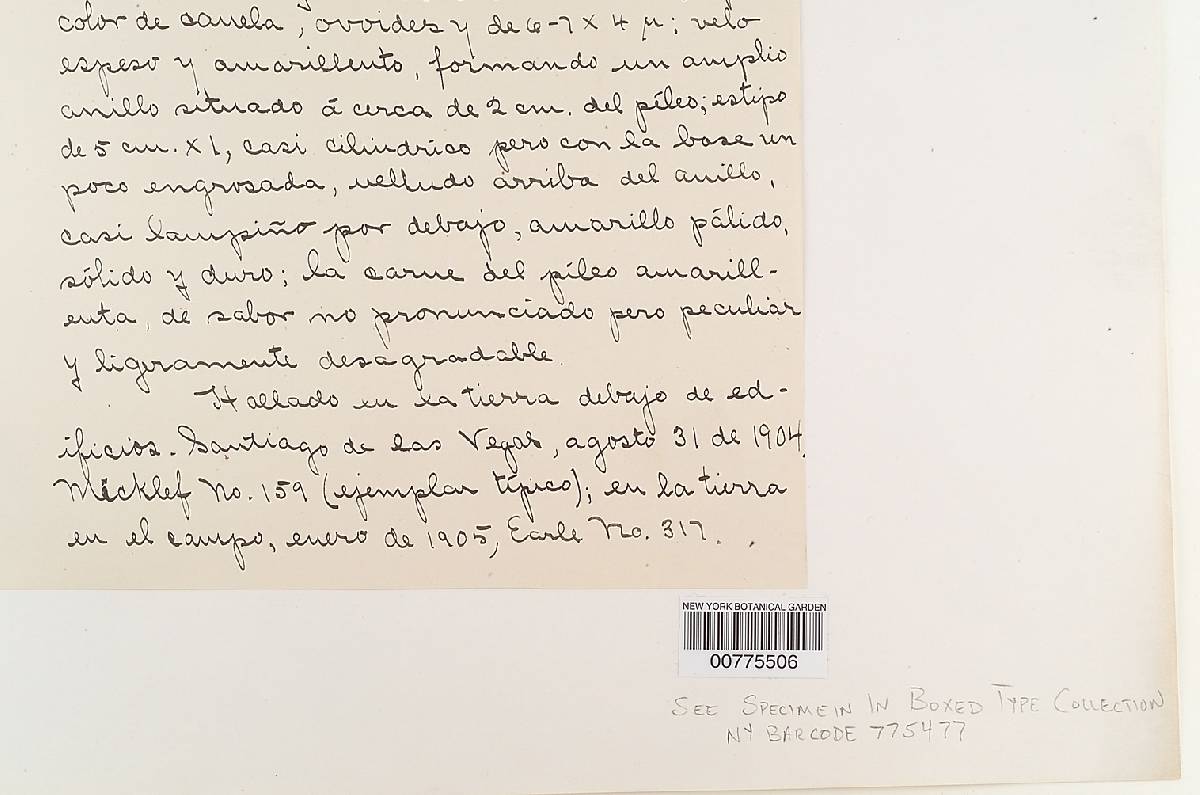 color de canela, ovoides y de 6-7 x 4 µ; velo
espeso y amarillento, formando un amplio
anillo situado á cerca de 2 cm. del píleo; estipo
de 5 cm. x 1, casi cilindrico pero con la base un
poco engrosada, velludo arriba del anillo,
casi lampiño por debajo, amarillo pálido,
sólido y duro; la carne del píleo amarill-
enta, de sabor no pronunciado pero peculiar
y ligeramente desagradable.
Hallado en la tierra debajo de ed-
ificios. Santiago de las Vegas, agosto 31 de 1904,
Micklef No. 159 (ejemplar típico); en la tierra
en el campo, enero de 1905, Earle No. 317.
NEW YORK BOTANICAL GARDEN
00775506
SEE SPECIMEIN IN BOXED TYPE COLLECTION
NY BARCODE 775477